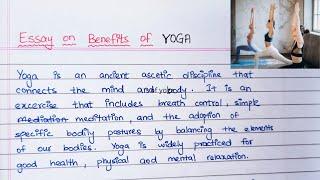 Essay on Benefits of YOGA
Yoga is an ancient ascetic discipline that
connects the mind and body. It is an
excercise that includes breath control, simple
mediation meditation, and the adoption of
specific bodily postures by balancing the elements
of our bodies. Yoga is widely practiced for
good health, physical and mental relaxation.